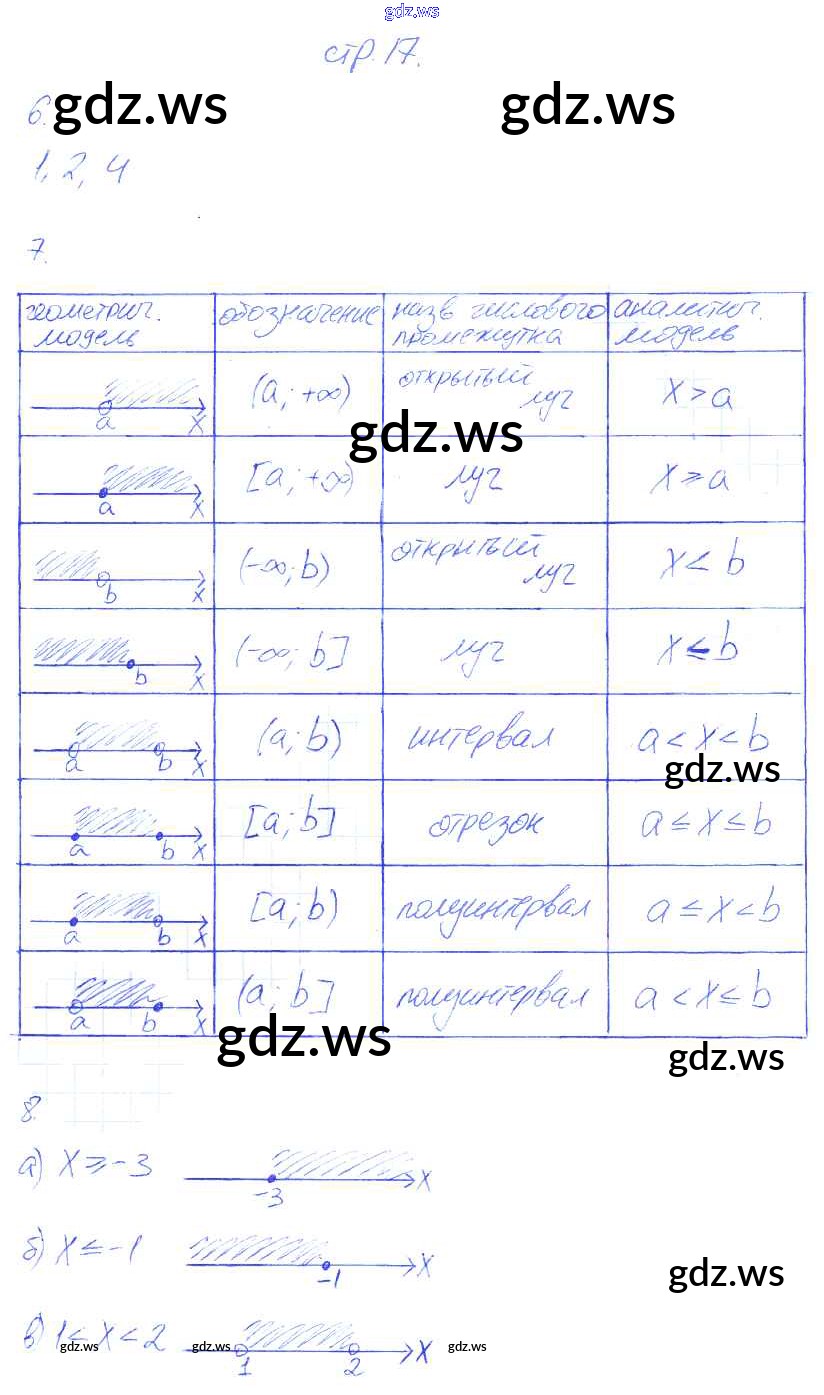 gdz.ws
стр. 17.
6. gdz.ws gdz.ws
1, 2, 4
7.
геометрич. модель обозначение назв числового промежутка аналитич. модель
a x (a; +∞) открытый луч x > a
gdz.ws
a x [a; +∞) луч x ≥ a
b x (-∞; b) открытый луч x < b
b x (-∞; b] луч x ≤ b
a b x (a; b) интервал a < x < b
gdz.ws
a b x [a; b] отрезок a ≤ x ≤ b
a b x [a; b) полуинтервал a ≤ x < b
a b x (a; b] полуинтервал a < x ≤ b
gdz.ws gdz.ws
8.
а) x ≥ -3 -3 x
б) x ≤ -1 -1 x
gdz.ws
в) 1 < x < 2 1 2 x
gdz.ws gdz.ws gdz.ws